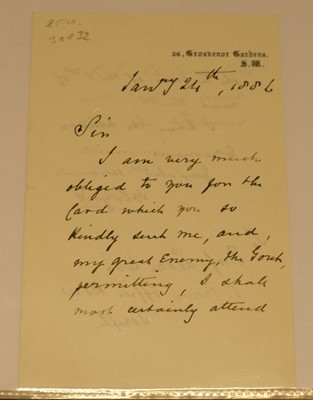 25.00
30832
24, Grosvenor Gardens.
S.W.
Jany 24th, 1886
Sir
I am very much
obliged to you for the
Card which you so
kindly sent me, and,
my great Enemy, the Gout,
permitting, I shall
most certainly attend